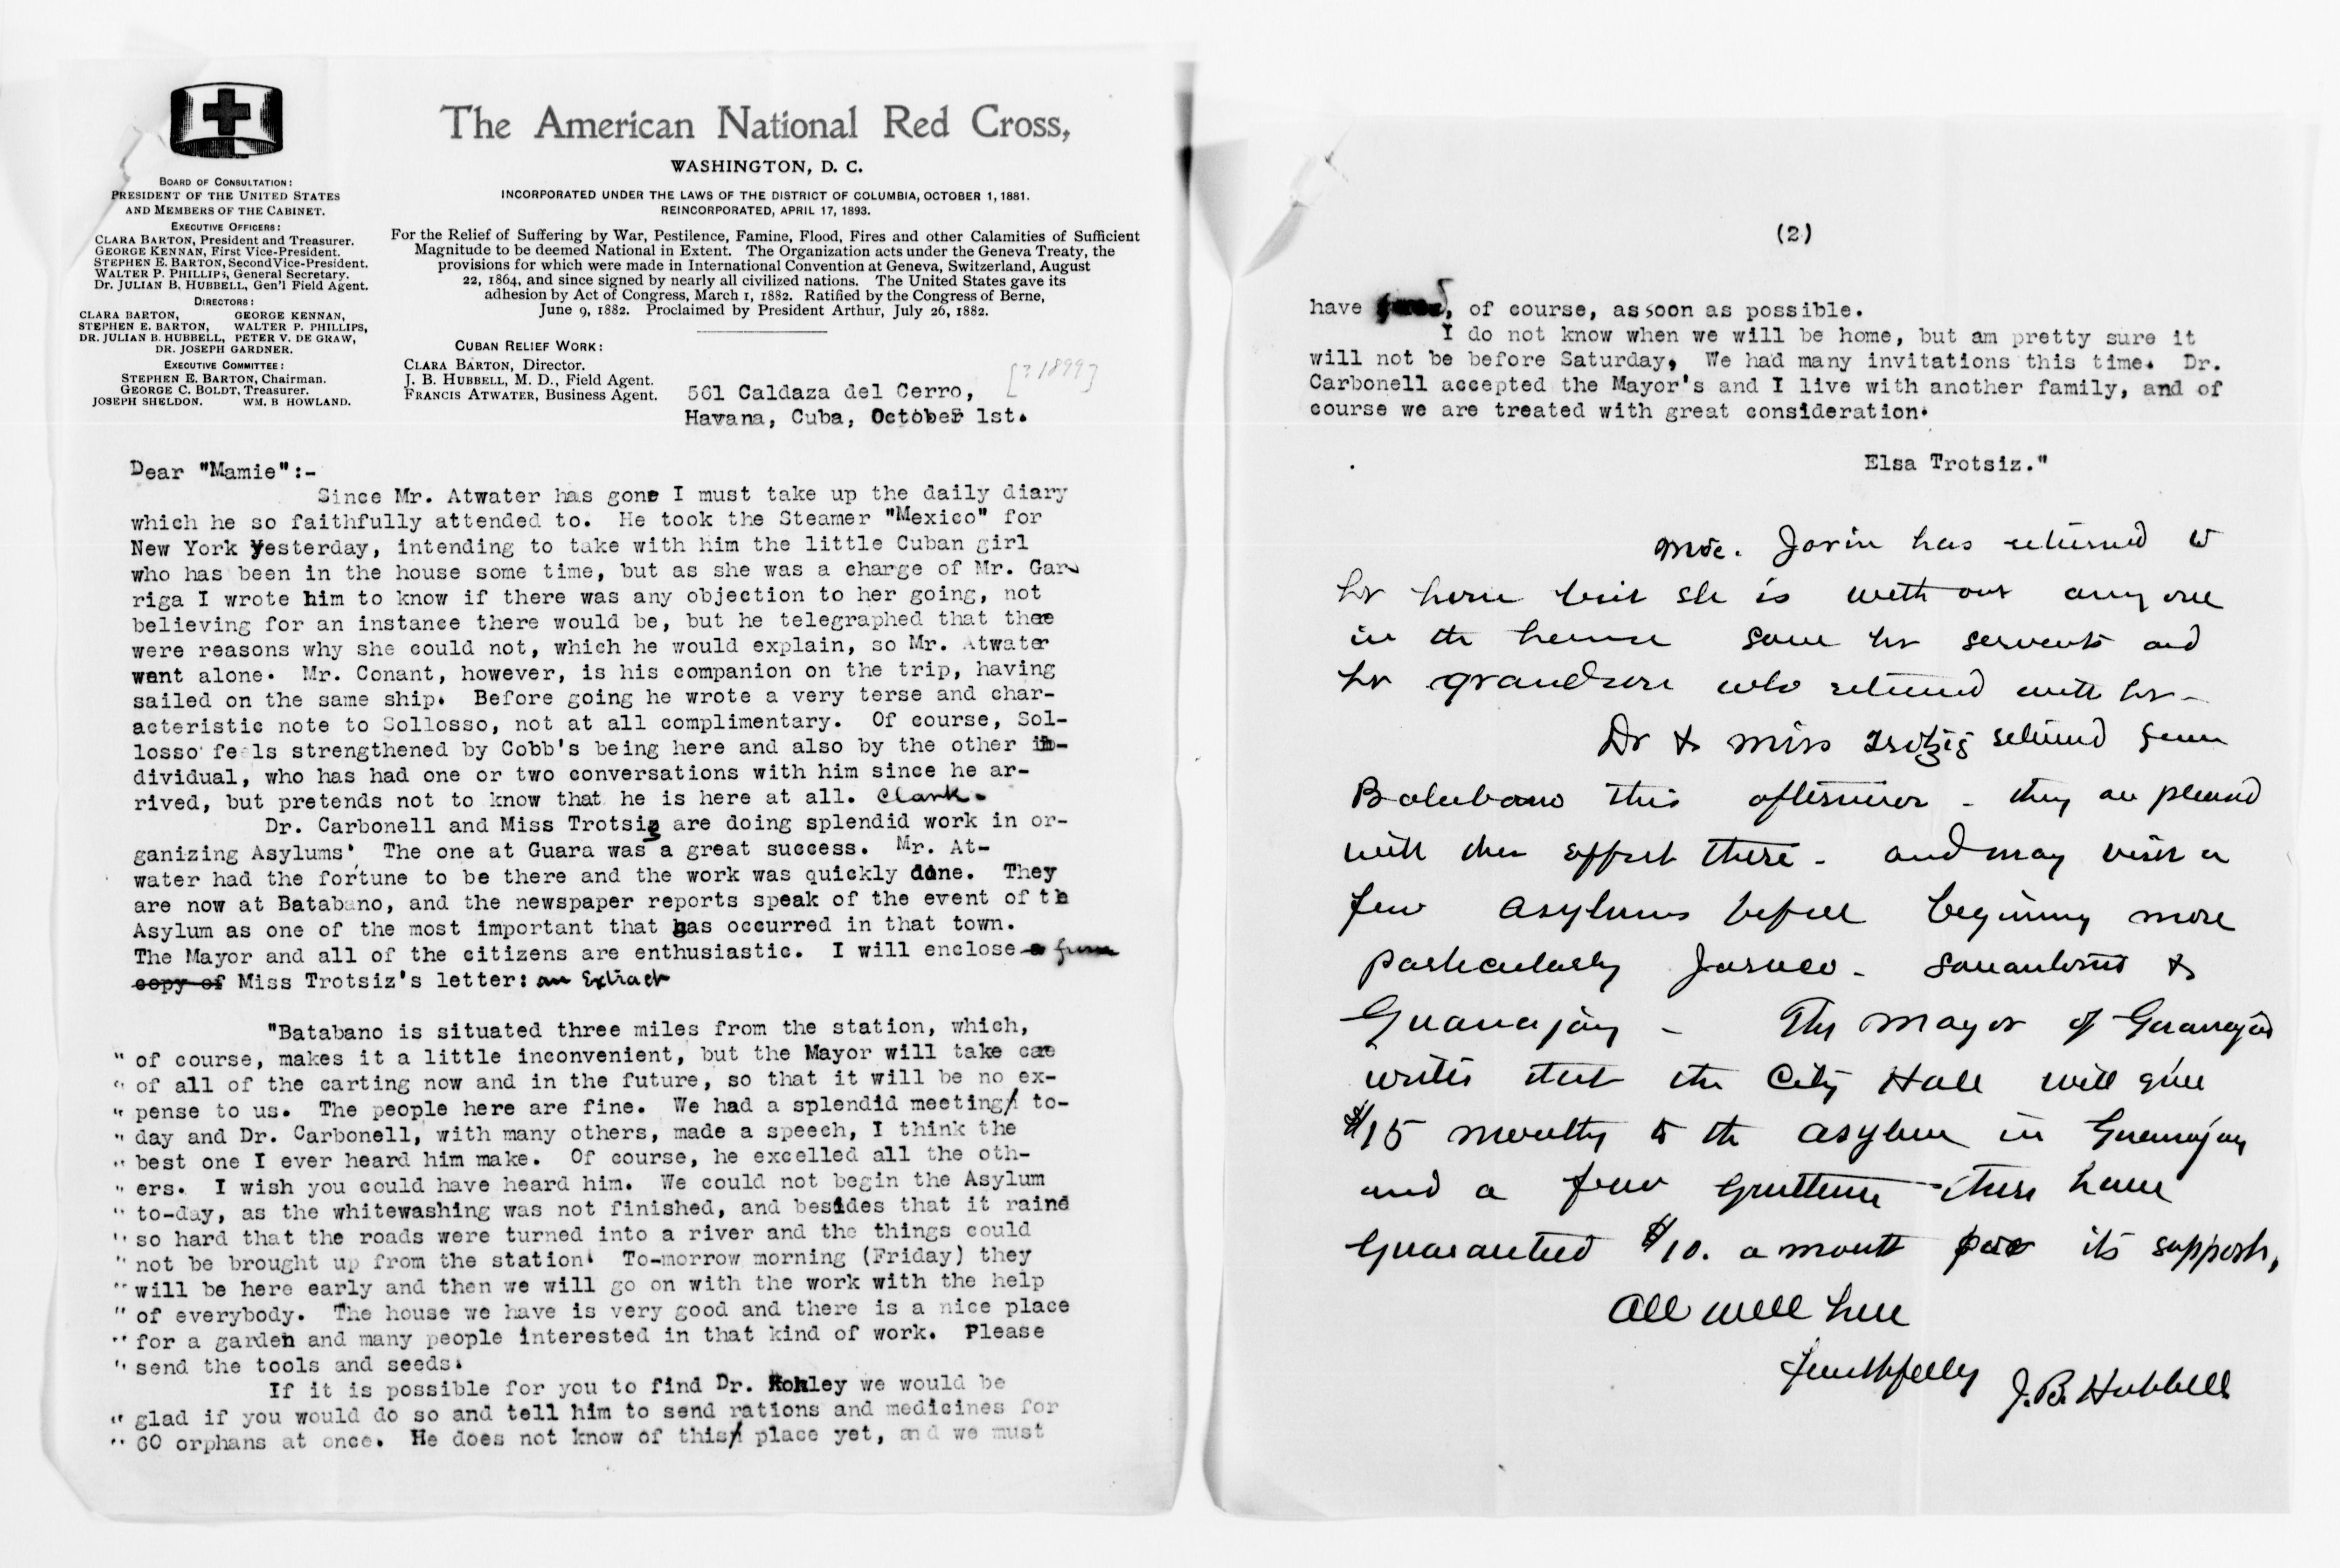 The American National Red Cross,
WASHINGTON, D. C.
INCORPORATED UNDER THE LAWS OF THE DISTRICT OF COLUMBIA, OCTOBER 1, 1881.
REINCORPORATED, APRIL 17, 1893.
For the Relief of Suffering by War, Pestilence, Famine, Flood, Fires and other Calamities of Sufficient
Magnitude to be deemed National in Extent. The Organization acts under the Geneva Treaty, the
provisions for which were made in International Convention at Geneva, Switzerland, August
22, 1864, and since signed by nearly all civilized nations. The United States gave its
adhesion by Act of Congress, March 1, 1882. Ratified by the Congress of Berne,
June 9, 1882. Proclaimed by President Arthur, July 26, 1882.
BOARD OF CONSULTATION:
PRESIDENT OF THE UNITED STATES
AND MEMBERS OF THE CABINET.
EXECUTIVE OFFICERS:
CLARA BARTON, President and Treasurer.
GEORGE KENNAN, First Vice-President.
STEPHEN E. BARTON, Second Vice-President.
WALTER P. PHILLIPS, General Secretary.
Dr. JULIAN B. HUBBELL, Gen'l Field Agent.
DIRECTORS:
CLARA BARTON, GEORGE KENNAN,
STEPHEN E. BARTON, WALTER P. PHILLIPS,
DR. JULIAN B. HUBBELL, PETER V. DE GRAW,
DR. JOSEPH GARDNER.
EXECUTIVE COMMITTEE:
STEPHEN E. BARTON, Chairman.
GEORGE C. BOLDT, Treasurer.
JOSEPH SHELDON. WM. B HOWLAND.
CUBAN RELIEF WORK:
CLARA BARTON, Director.
J. B. HUBBELL, M. D., Field Agent.
FRANCIS ATWATER, Business Agent.
[? 1899]
561 Caldaza del Cerro,
Havana, Cuba, October 1st.
Dear "Mamie":-
Since Mr. Atwater has gone I must take up the daily diary
which he so faithfully attended to. He took the Steamer "Mexico" for
New York yesterday, intending to take with him the little Cuban girl
who has been in the house some time, but as she was a charge of Mr. Gar-
riga I wrote him to know if there was any objection to her going, not
believing for an instance there would be, but he telegraphed that thee
were reasons why she could not, which he would explain, so Mr. Atwater
want alone. Mr. Conant, however, is his companion on the trip, having
sailed on the same ship. Before going he wrote a very terse and char-
acteristic note to Sollosso, not at all complimentary. Of course, Sol-
losso feels strengthened by Cobb's being here and also by the other in-
dividual, who has had one or two conversations with him since he ar-
rived, but pretends not to know that he is here at all. Clark.
Dr. Carbonell and Miss Trotsig are doing splendid work in or-
ganizing Asylums. The one at Guara was a great success. Mr. At-
water had the fortune to be there and the work was quickly done. They
are now at Batabano, and the newspaper reports speak of the event of the
Asylum as one of the most important that has occurred in that town.
The Mayor and all of the citizens are enthusiastic. I will enclose a from
copy of Miss Trotsiz's letter: an Extract
"Batabano is situated three miles from the station, which,
" of course, makes it a little inconvenient, but the Mayor will take cae
" of all of the carting now and in the future, so that it will be no ex-
" pense to us. The people here are fine. We had a splendid meeting to-
" day and Dr. Carbonell, with many others, made a speech, I think the
" best one I ever heard him make. Of course, he excelled all the oth-
" ers. I wish you could have heard him. We could not begin the Asylum
" to-day, as the whitewashing was not finished, and besides that it raind
" so hard that the roads were turned into a river and the things could
" not be brought up from the station. To-morrow morning (Friday) they
" will be here early and then we will go on with the work with the help
" of everybody. The house we have is very good and there is a nice place
" for a garden and many people interested in that kind of work. Please
" send the tools and seeds.
If it is possible for you to find Dr. Hohley we would be
" glad if you would do so and tell him to send rations and medicines for
" 60 orphans at once. He does not know of this place yet, and we must
(2)
have , of course, as soon as possible.
I do not know when we will be home, but am pretty sure it
will not be before Saturday, We had many invitations this time. Dr.
Carbonell accepted the Mayor's and I live with another family, and of
course we are treated with great consideration.
Elsa Trotsiz."
Mde. Jorin has returned to
hr home but she is without any one
in the house save hr servants and
hr grandson who returned with hr -
Dr & Miss Trotzig returned from
Batabano this afternoon - they are pleased
with their effort there - and may visit a
few asylums before beginning more
particularly Jaruco - &
Guanajay - The Mayor of Guanajay
writes that the City Hall will give
$15 monthly to the asylum in Guanajay
and a few gentlemen there have
guaranteed $10. a month for its support,
All well here
Faithfully J. B. Hubbell